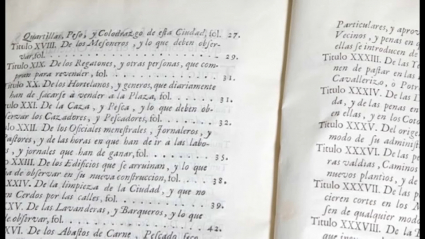 Quartillas, Peso, y Colodrazgo de esta Ciudad, fol. 27.
Titulo XVIII. De los Mesoneros, y lo que deben obser-
var, fol. 29.
Titulo XIX. De los Regatones, y otras personas, que com-
pran para revender, fol. 31.
Titulo XX. De los Hortelanos, y generos, que diariamente
han de sacarse à vender à la Plaza, fol. 31.
XXI. De la Caza, y Pesca, y lo que deben ob-
servar los Cazadores, y Pescadores, fol. 32.
XXII. De los Oficiales menestrales, Jornaleros, y
Pastores, y de las horas en que han de ir à las labo-
y jornales que han de ganar, fol. 35.
XXIII. De los Edificios que se arruinan, y lo que
de observar en su nueva construccion, fol. 38.
XXIV. De la limpieza de la Ciudad, y que no
en Cerdos por las calles, fol. 39.
XXV. De las Lavanderas, y Barqueros, y lo que
observar, fol. 42.
XXVI. De los Abastos de Carne, Pescado seco
Particulares, y aprov
Vecinos, y penas en q
ellas se introducen de
Titulo XXXIII. De las Te
nen de pastar en las
Cavallerizo, o Potr
Titulo XXXIV. De las E
da, y de las penas en
en ellas, y en los Coto
Titulo XXXV. Del origen
modo de su administ
Titulo XXXVI. De las p
ras valdias, Caminos
nuevos plantios, y de
Titulo XXXVII. De las p
cieren cortes en los M
sen de qualquier modo
Titulo XXXVIII. De las